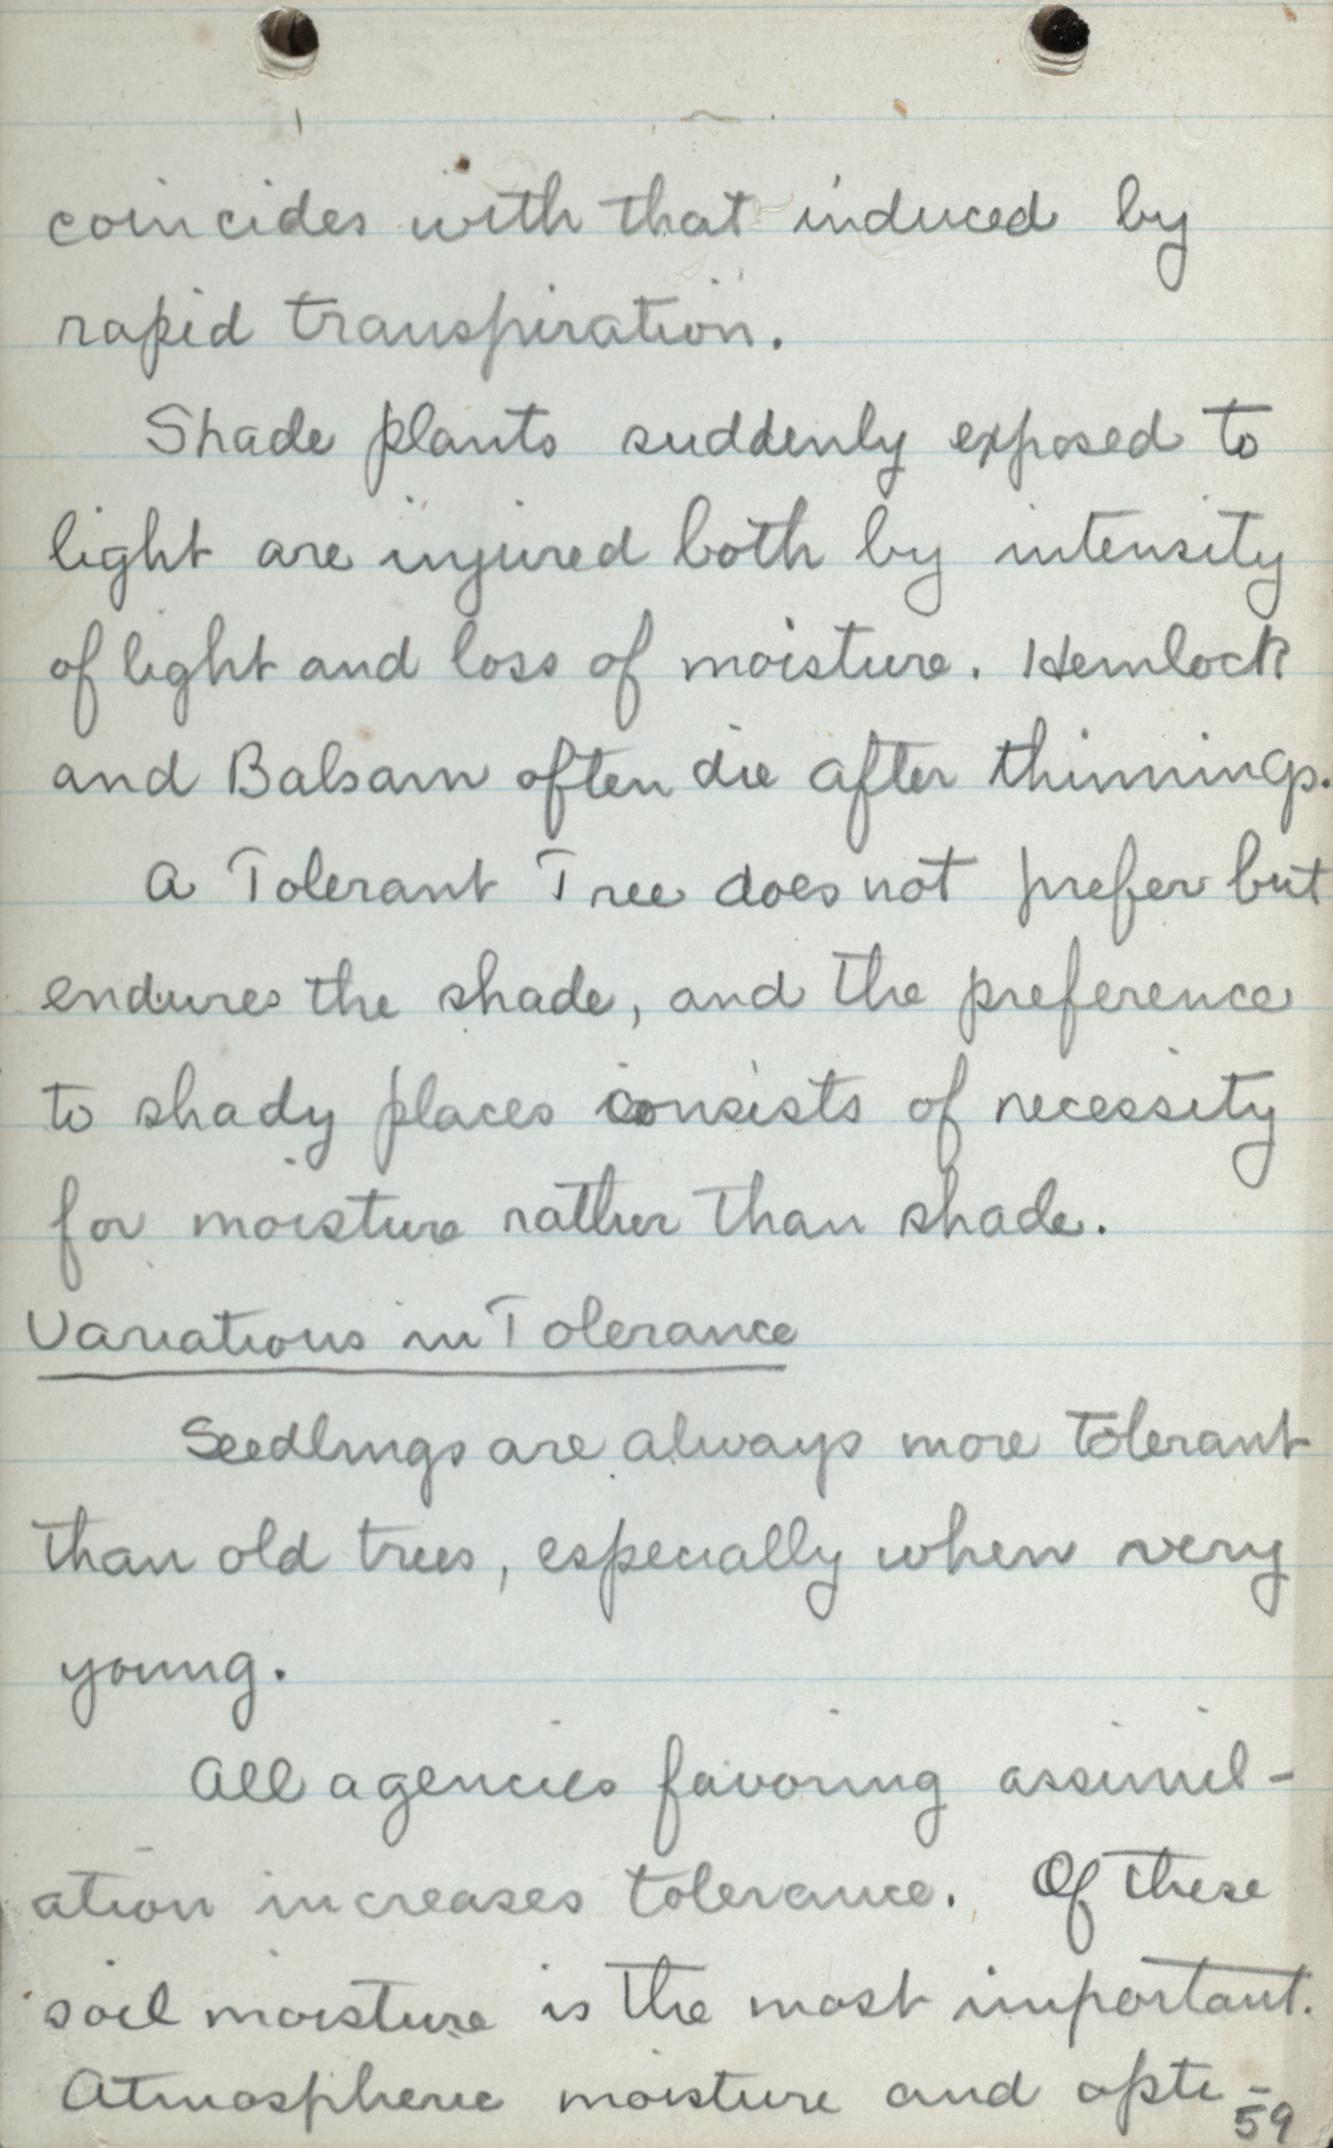 coincides with that induced by
rapid transpiration.
Shade plants suddenly exposed to
light are injured both by intensity
of light and loss of moisture. Hemlock
and Balsam often die after thinnings.
A Tolerant Tree does not prefer but
endures the shade, and the preference
to shady places consists of necessity
for moisture rather than shade.
Variations in Tolerance
Seedlings are always more tolerant
than old trees, especially when very
young.
All agencies favoring assimil-
ation increases tolerance. Of these
soil moisture is the most important.
Atmospheric moisture and opti-
59